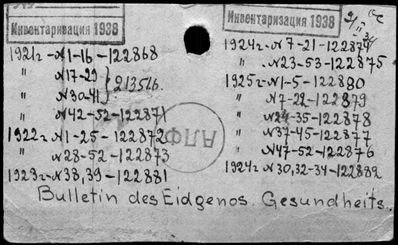 Инвентаризация 1938
Инвентаризация 1938
1921г - N 1-16 - 122868
" N 17-29 } 213516.
" N 30-41
" N 42-52 - 122871
1922г - N 1-25 - 122872
" N 28-52 - 122873
1923г - N 38,39 - 122881
1924г - N 7-21 - 122874
" N 23-53 - 122875
1925г - N 1-5 - 122880
" N 7-22 - 122879
" N 24-35 - 122878
" N 37-45 - 122877
" N 47-52 - 122876
1924г - N 30,32-34 - 122882
АЛФ
Bulletin des Eidgenos. Gesundheits.